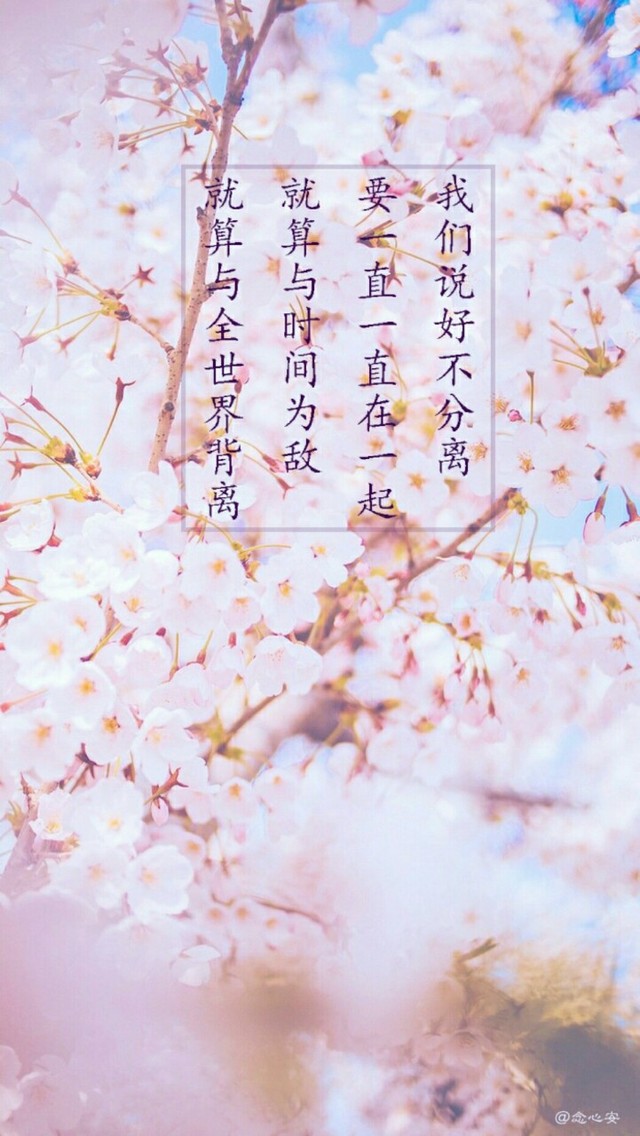 我们说好不分离
要一直一直在一起
就算与时间为敌
就算与全世界背离
@念心安